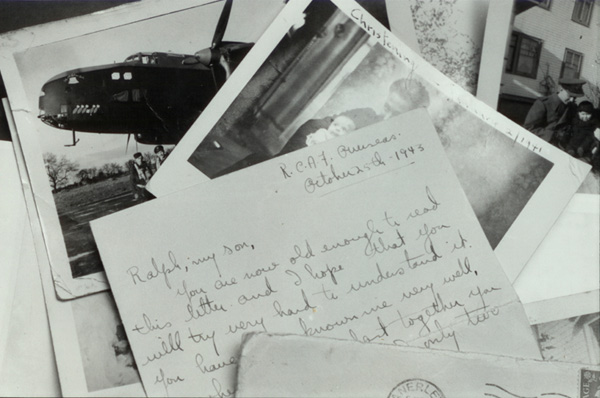 Christening
2/1941
R.C.A.F. Overseas.
October 25th. 1943
Ralph, my son,
You are now old enough to read
this letter and I hope that you
will try very hard to understand it.
you have known me very well,
had together you
only two